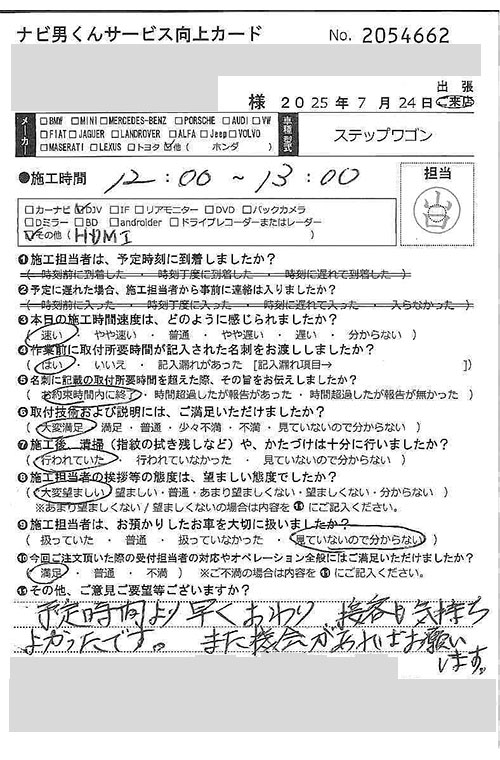 ナビ男くんサービス向上カード No. 2054662
出張
様 2025年7月24日 ご来店
メーカー □BMW □MINI □MERCEDES-BENZ □PORSCHE □AUDI □VW
□FIAT □JAGUER □LANDROVER □ALFA □Jeep □VOLVO
□MASERATI □LEXUS □トヨタ ☑他 ( ホンダ )
車種/型式 ステップワゴン
●施工時間 12:00 ~ 13:00
担当
□カーナビ ☑DJV □IF □リアモニター □DVD □バックカメラ
□Dミラー □BD □androider □ドライブレコーダーまたはレーダー
☑その他 ( HDMI )
❶施工担当者は、予定時刻に到着しましたか?
( 時刻前に到着した ・ 時刻丁度に到着した ・ 時刻に遅れて到着した )
❷予定に遅れた場合、施工担当者から事前に連絡は入りましたか?
( 時刻前に入った ・ 時刻丁度に入った ・ 時刻に遅れて入った ・ 入らなかった )
❸本日の施工時間速度は、どのように感じられましたか?
( 速い ・ やや速い ・ 普通 ・ やや遅い ・ 遅い ・ 分からない )
❹作業前に取付所要時間が記入された名刺をお渡ししましたか?
( はい ・ いいえ ・ 記入漏れがあった [記入漏れ項目→ ])
❺名刺に記載の取付所要時間を超えた際、その旨をお伝えしましたか?
( お約束時間内に終了 ・ 時間超過したが報告があった ・ 時間超過したが報告が無かった )
❻取付技術および説明には、ご満足いただけましたか?
( 大変満足 ・ 満足 ・ 普通 ・ 少々不満 ・ 不満 ・ 見ていないので分からない )
❼施工後、清掃(指紋の拭き残しなど)や、かたづけは十分に行いましたか?
( 行われていた ・ 行われていなかった ・ 見ていないので分からない )
❽施工担当者の挨拶等の態度は、望ましい態度でしたか?
( 大変望ましい ・ 望ましい ・ 普通 ・ あまり望ましくない ・ 望ましくない ・ 分からない )
※あまり望ましくない / 望ましくないの場合は内容を⓫にご記入ください。
❾施工担当者は、お預かりしたお車を大切に扱いましたか?
( 扱っていた ・ 普通 ・ 扱っていなかった ・ 見ていないので分からない )
❿今回ご注文頂いた際の受付担当者の対応やオペレーション全般にはご満足いただけましたか?
( 満足 ・ 普通 ・ 不満 ) ※ご不満の場合は内容を⓫にご記入ください。
⓫その他、ご意見ご要望等ございますか?
予定時間より早くおわり 接客も気持ち
よかったです。 また機会があればお願い
します。